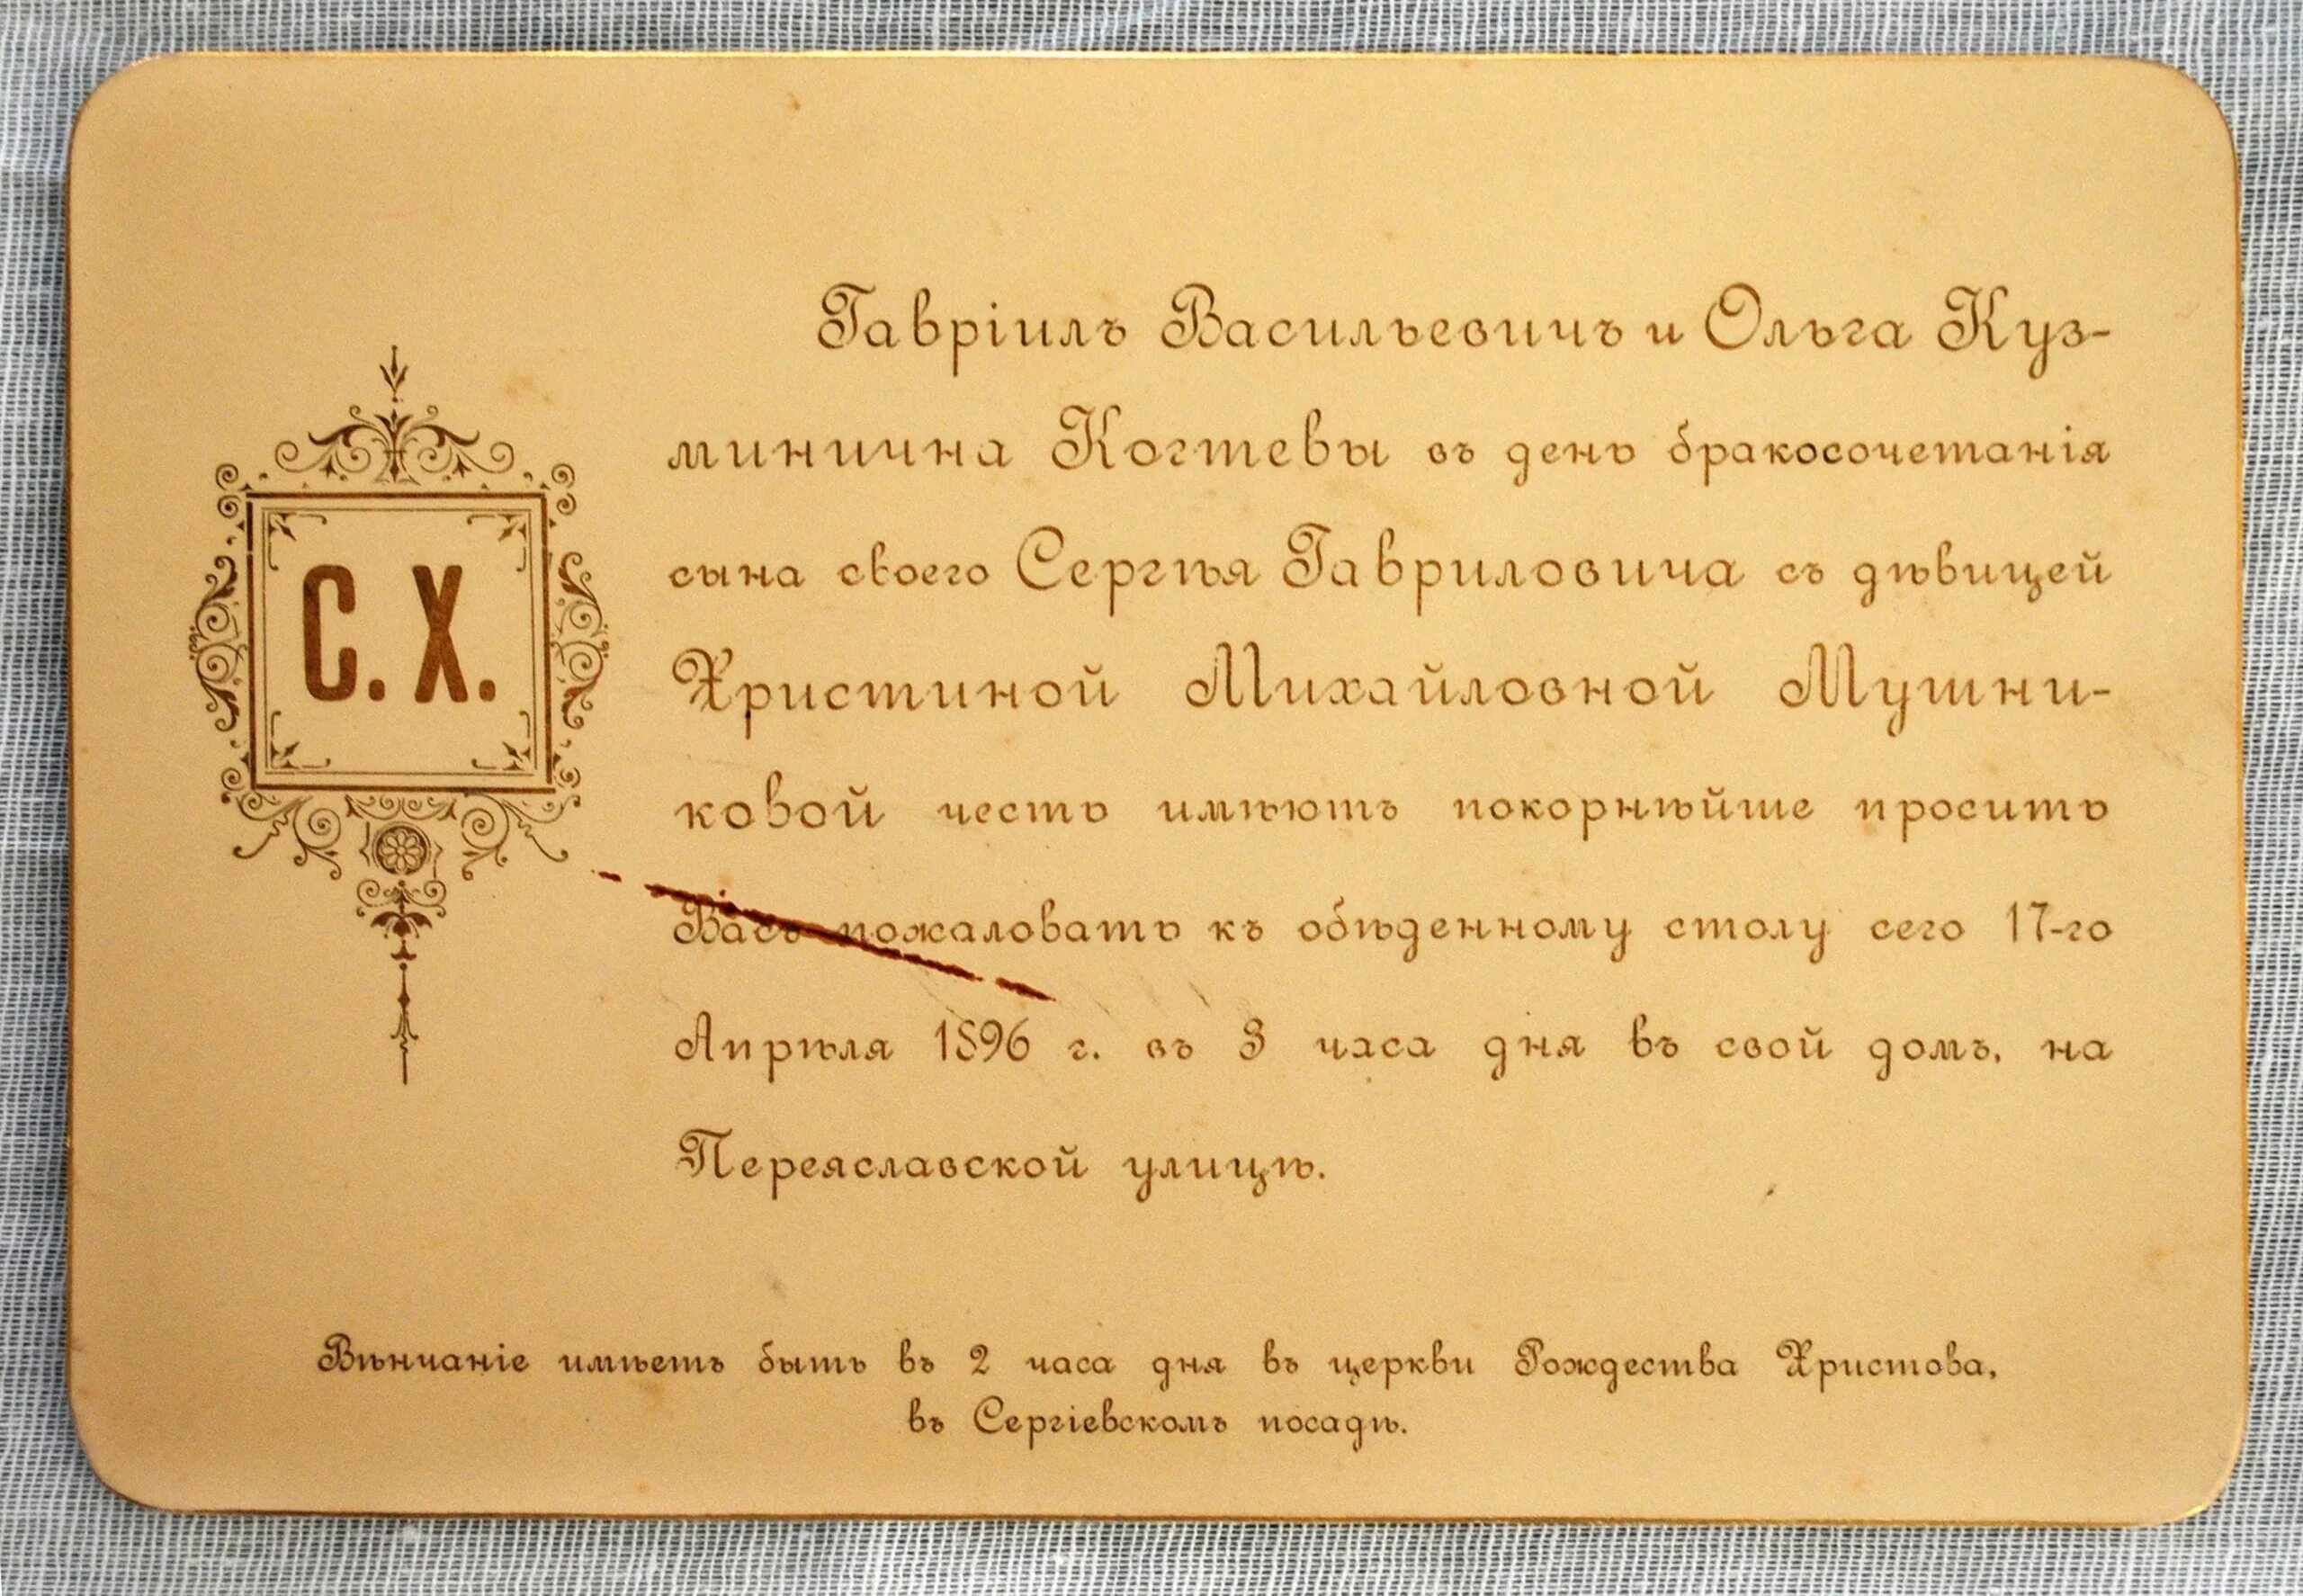 С. Х.
Гавріилъ Васильевичъ и Ольга Куз-
минична Когтевы въ день бракосочетанія
сына своего Сергѣя Гавриловича съ дѣвицей
Христиной Михайловной Мушни-
ковой честь имѣютъ покорнѣйше просить
Васъ пожаловать къ обѣденному столу сего 17-го
Апрѣля 1896 г. въ 3 часа дня въ свой домъ, на
Переяславской улицѣ.
Вѣнчаніе имѣетъ быть въ 2 часа дня въ церкви Рождества Христова,
въ Сергіевскомъ посадѣ.